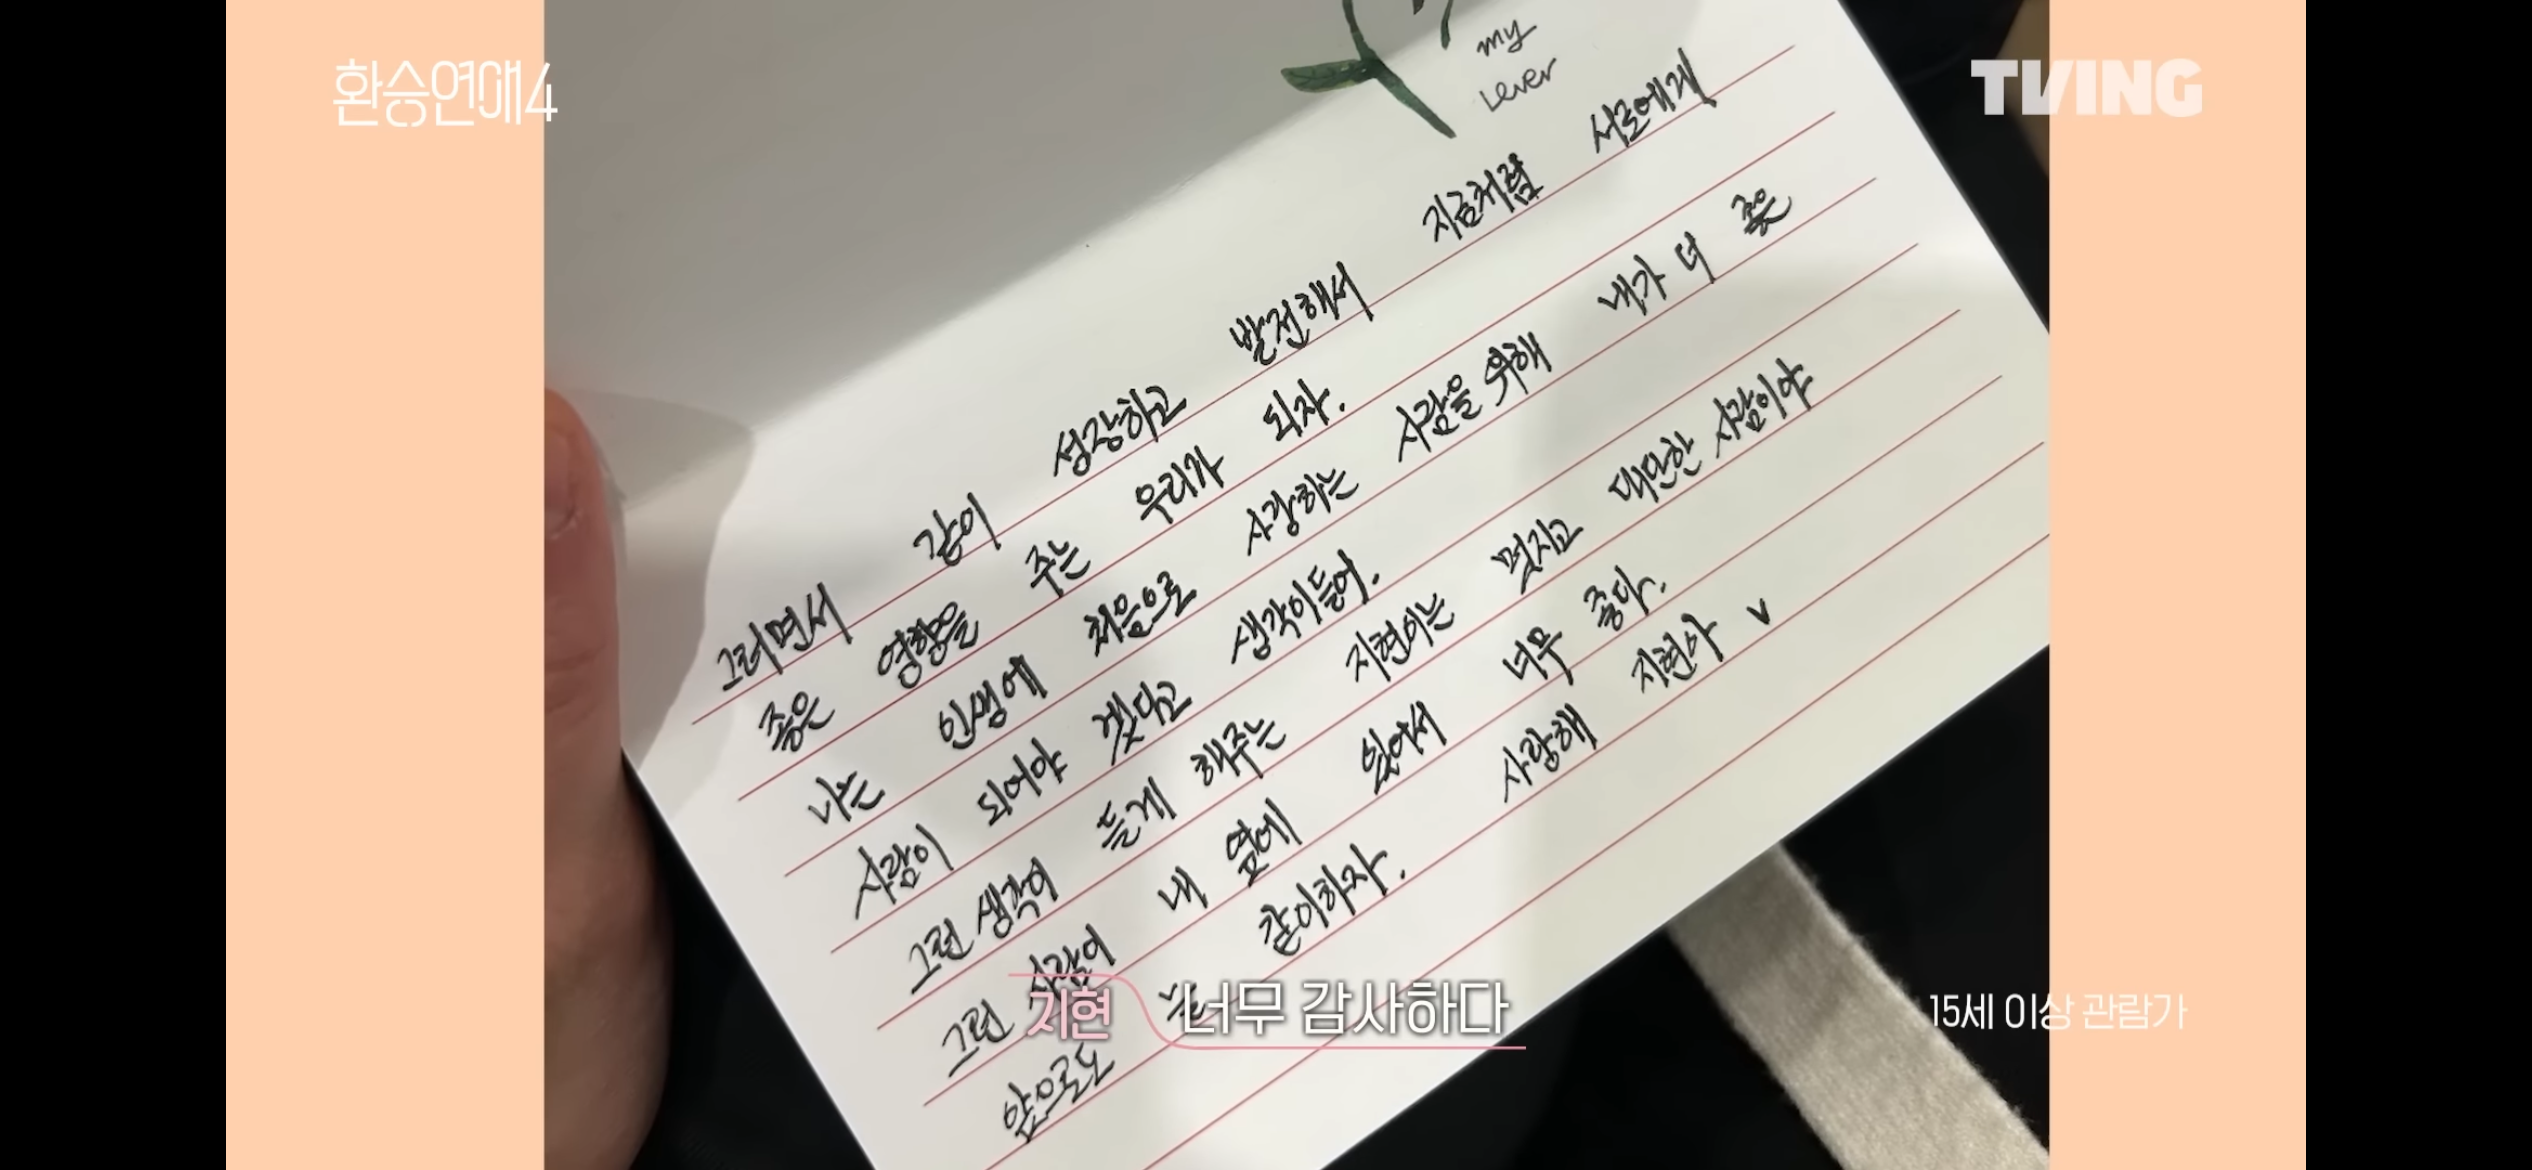 환승연애4
TVING
my
Lever
그러면서 같이 성장하고 발전해서 지금처럼 서로에게
좋은 영향을 주는 우리가 되자.
나는 인생에 처음으로 사랑하는 사람을 위해 내가 더 좋은
사람이 되어야 겠다고 생각이들어.
그런 생각이 들게 해주는 지현이는 멋지고 대단한 사람이야
그런 사람이 내 옆에 있어서 너무 좋다.
앞으로도 늘 같이하자. 사랑해 지현아 v
지현 너무 감사하다
15세 이상 관람가